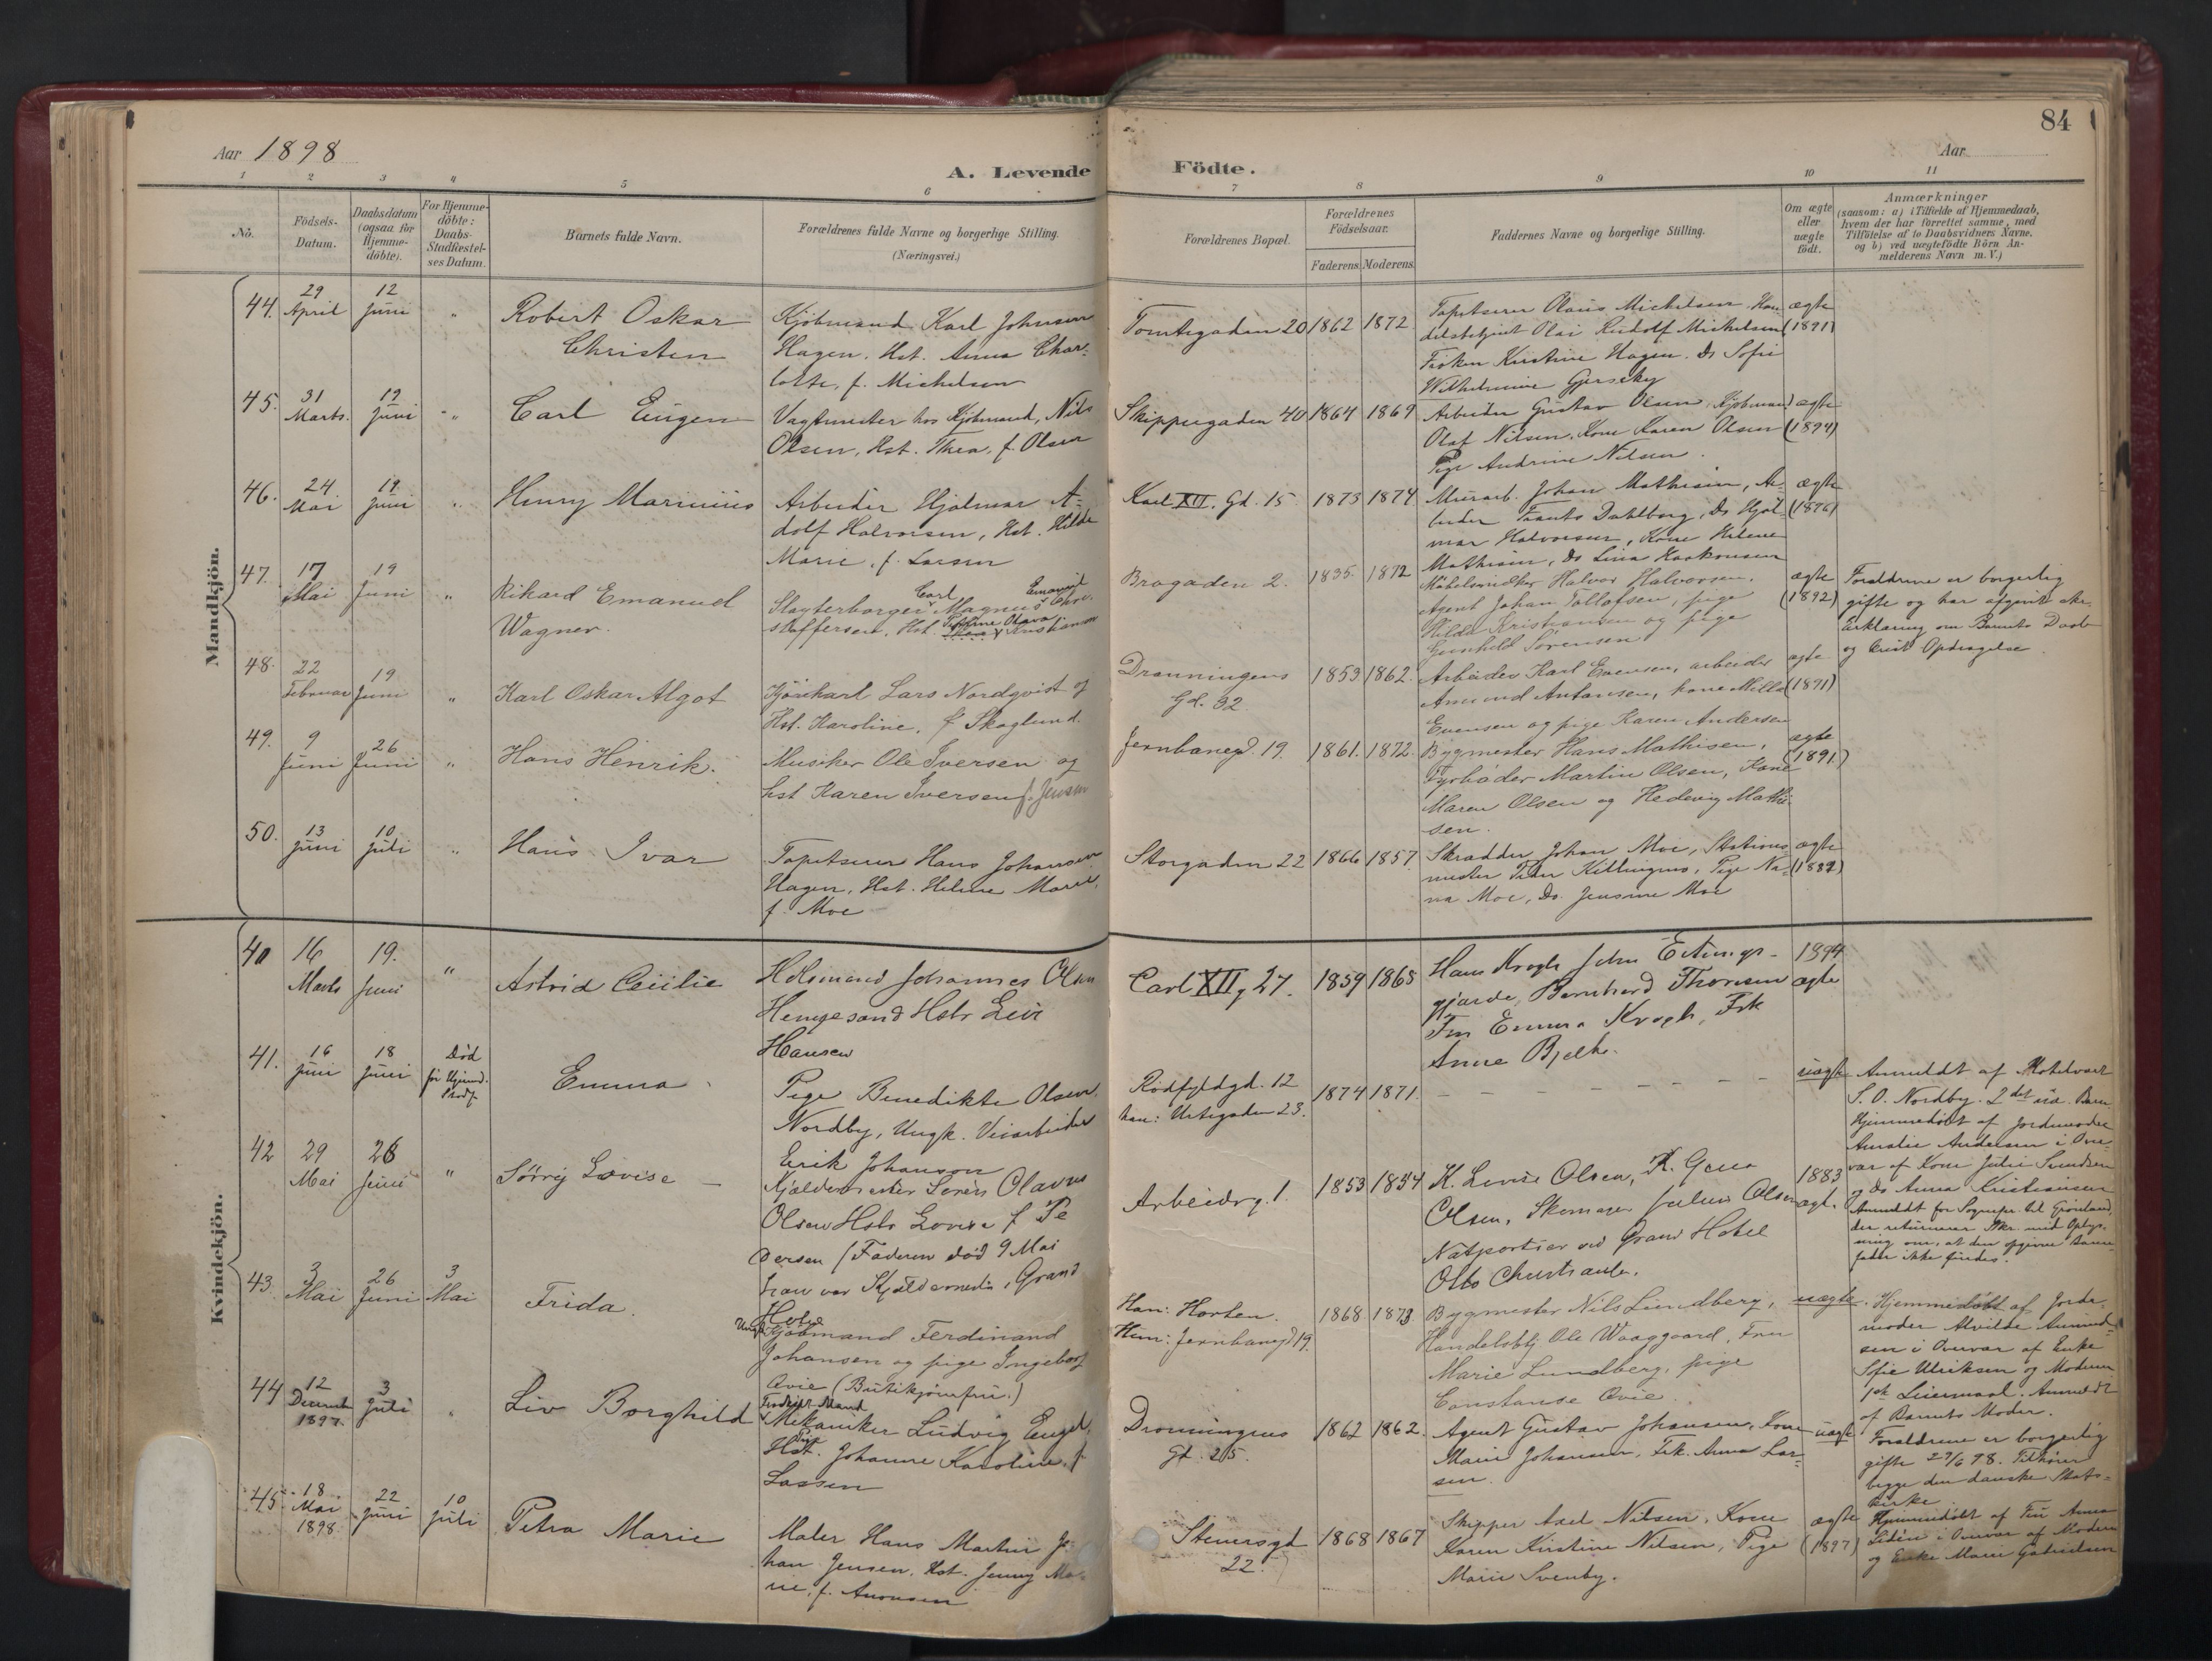 Aar 1898
A. Levende Födte.
84
Aar
1 2 3 4 5 6 7 8 9 10 11
No.
Födsels-Datum.
Daabsdatum (ogsaa for Hjemme-döbte).
For Hjemme-döbte: Daabs-Stadfæstel-ses Datum.
Barnets fulde Navn.
Forældrenes fulde Navne og borgerlige Stilling.
(Næringsvei.)
Forældrenes Bopæl.
Forældrenes Födselsaar.
Faderens. Moderens.
Faddernes Navne og borgerlige Stilling.
Om ægte eller uægte födt.
Anmærkninger
(saasom: a) i Tilfælde af Hjemmedaab, hvem der har forrettet samme, med Tilföielse af to Daabsvidners Navne. og b) ved uægtefödte Börn Anmelderens Navn m. V.)
Mandkjön.
44. 29 April 12 Juni "
Robert Oskar
Christen
Kjöbmand Karl Johnsen
Hagen, Hst. Anna Char-
lotte, f. Michelsen
Tomtegaden 20 1862 1872
Tapetserer Olaus Michelsen, Han-
delsbetjent Olai Rudolf Michelsen
Frøken Kristine Hagen, Ds Sofie
Wilhelmine
ægte
(1891)
45. 31 Marts. 19 Juni "
Carl Eugen
Vagtmester hos Kjöbmand, Nils
Olsen, Hst. Thea, f. Olsen
Skippergaden 40 1864 1869
Arbeider Gustav Olsen, Kjøbmand
Olaf Nilsen, Kone Karen Olsen
Pige Andrine Nilsen.
ægte
(1894)
46. 24 Mai 19 Juni "
Henry Marinius
Arbeider Hjalmar A-
dolf Halvorsen, Hst. Hilda
Marie, f. Larsen
Karl XII. Gd. 15. 1873 1874
Murarb. Johan Mathisen, Ar-
beider Frants Dahlborg, Ds Hjal-
mar Halvorsen, Kone Helene
Mathisen, Ds Lina Haakonsen
ægte
(1896)
47. 17 Mai 19 Juni "
Rikard Emanuel
Wagner.
Carl Emanuel
Slagterborger Magnus Chri-
stoffersen, Hst. Kristiansen
Bragaden 2. 1835. 1872
Møbelsnedker Halvor Halvorsen,
Agent Johan Tollofsen, pige
Hilda Kristiansen og pige
Gunhild Sørensen
ægte
(1892)
Forældrene er borgerlig
gifte og har afgivet skr.
Erklæring om Barnets Daab
og krist. Opdragelse
48. 22 Februar 19 Juni "
Karl Oskar Algot
Kjørekarl Lars Nordqvist og
Hst. Karoline, f. Skoglund.
Dronningens
Gd. 32.
1859 1862.
Arbeider Karl Evensen, arbeider
Amund Antonsen, kone Milla
Evensen og pige Karen Andersen
ægte
(1891)
49. 9 Juni 26 Juni "
Hans Henrik.
Musiker Ole Iversen og
hst Karen Iversen f. Jensen
Jernbanegd. 19. 1861. 1872.
Bygmester Hans Mathisen,
Fyrbøder Martin Olsen, Kone
Maren Olsen og Hedevig Mathi-
sen.
ægte
(1891.)
50. 13 Juni 10 Juli "
Hans Ivar
Tapetserer Hans Johansen
Hagen, Hst. Helene Marie,
f. Moe
Storgaden 22 1866 1857.
Skrædder Johan Moe, Stations-
mester Killingmo, Pige Na-
na Moe, Ds. Jensine Moe
ægte
Kvindekjön.
40 16 Marts 19. Juni "
Astrid Cecilie
Holsmand Johannes Olsen
Hstr
Hansen
Carl XII g 27. 1859 1865
Hans Krogh
Bernhard Thoresen
Fru Emma Krogh, Frk
Anne Bjelke.
1894
ægte
41. 16 Juni 18 Juni
Død
før
Emma
Pige Benedikte Olsen,
Nordby, Ungk. Veiarbeider
Erik Johanson
Rødfyldgd. 12
han: Urtegaden 23.
1874 1871.
– – – – – –
uægte
Anmeldt af
S. O. Nordby. 2det uæ. Barn
Hjemmedøbt af Jordmoder
Amalie Andersen i Over-
vær af Kone Julie Svendsen
og Ds Anna Kristiansen
Anmeldt for Sognepr. til Grønland,
der returnerer Skr. med Oplys-
ning om, at den opgivne Barne-
fader ikke findes.
42 29 Mai 26 Juni "
Lovise –
Kjældermester Søren Olavus
Olsen Hstr Lovise f Pe
dersen (Faderen død 9 Mai
han var Kjældermester i Grand
Hotel
Arbeiderg. 1. 1853 1854
K. Lovise Olsen, K. Gena
Olsen, Skomager Julius Olsen
Natportier ved Grand Hotel
Otto
1883
ægt.
43. 3 Mai 26 Juni 3 Mai
Frida.
Ungk. Kjöbmand Ferdinand
Johansen og pige Ingeborg
Ovie (Butikjomfru.)
Han: Horten.
Hun: Jernbanegd 19.
1868 1873.
Bygmester Nils Lundberg,
Handelsbtj. Ole Waaggaard, Fru
Marie Lundberg, pige
Constanse Ovie
uægte.
Hjemmedøbt af Jorde-
moder Alvilde Amund-
sen i Overvær af Enke
Sofie Ulriksen og Moderen
1ste Leiermaal. Anmeldt
af Barnets Moder.
44 12 December 1897. 3 Juli "
Liv Borghild
Fraskilt Mand
Mekaniker Ludvig Engel,
Pige
Hst. Johanne Karoline, f.
Lassen
Dronningens
Gd. 25.
1862 1862.
Agent Gustav Johansen, Kone
Marie Johansen, Frk. Anna Lar-
sen.
uægte
Forældrene er borgerlig
gifte 29/6 98. Tilhører
begge den danske Stats-
kirke
45. 18. Mai 1898. 22 Juni 10 Juli
Petra Marie
Maler Hans Martin Jo-
han Jensen, Hst. Jenny Ma-
rie, f. Amundsen
Stenersgd
22.
1868 1867
Skipper Axel Nilsen, Kone
Karen Kristine Nilsen, Pige
Marie Svenby.
ægte
(1897)
Hjemmedøbt af Fru Anna
i Overvær af Moderen
og Enke Marie Gabrielsen